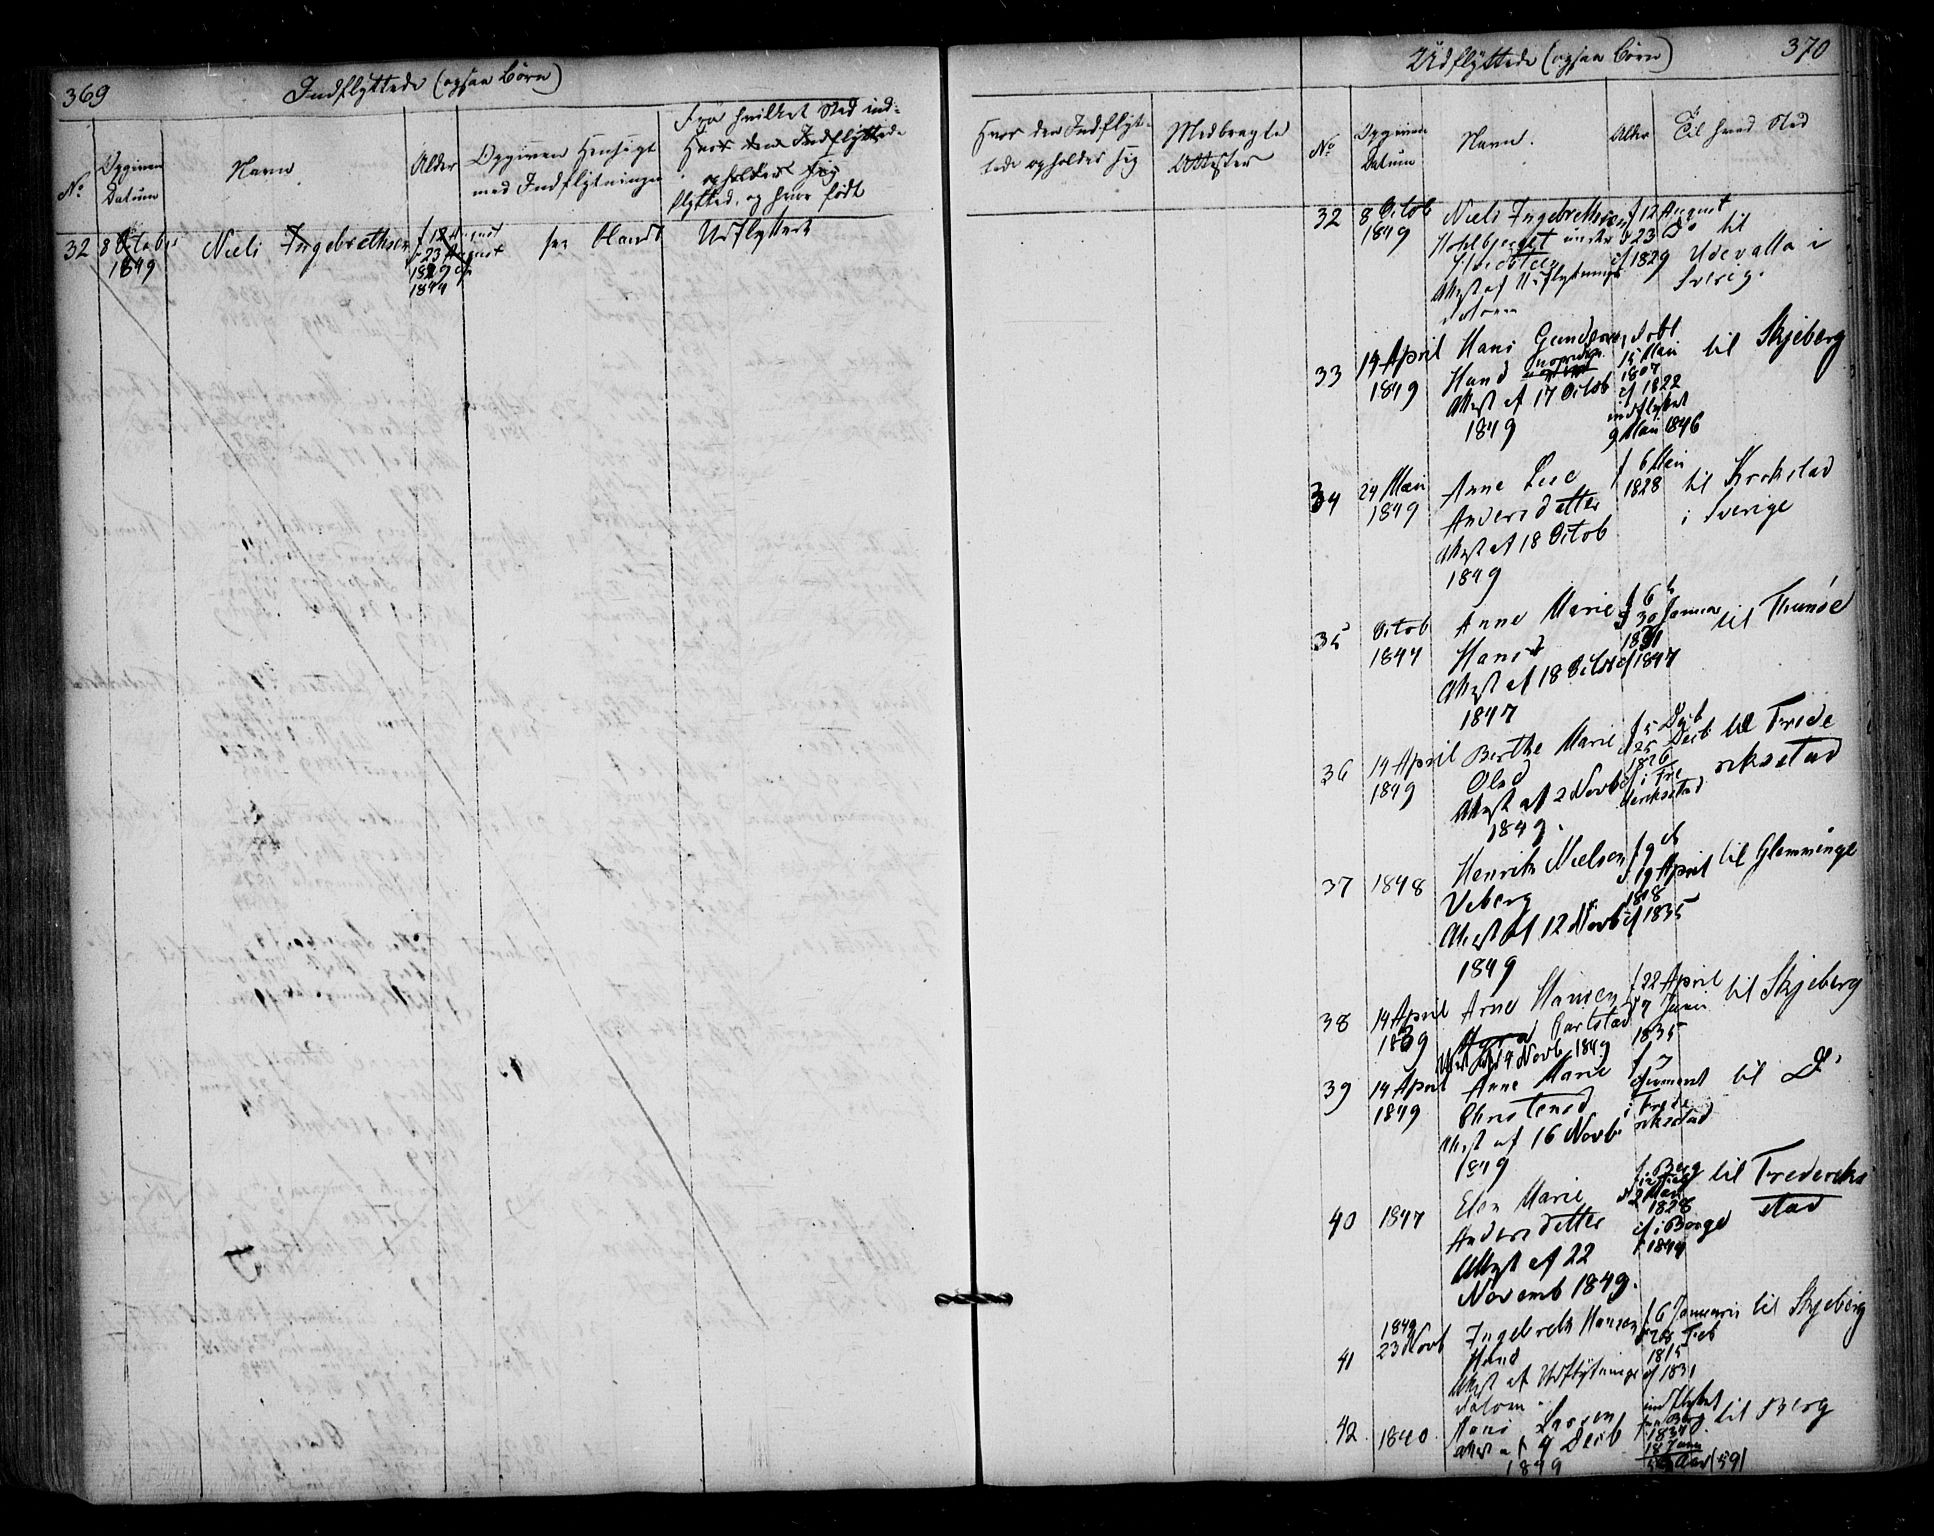 369
Indflyttede (ogsaa Børn)
No
Opgiven
Datum
Navn
Alder
Opgiven Hensigt
med Indflytningen
Fra hvilket Sted ind-
Hvor den Indflyttede
opholder sig
flytted, og hvor født
32
8 Octob
1849
Niels Ingebrethsen
f 12 August
d 23 August
1829 cf
1844
see blandt
Udflyttede
Hvor den Indflyt-
tede opholder sig
Medbragte
Attester
Udflyttede (ogsaa Børn)
370
No
Opgiven
Datum
Navn.
Alder
Til hvad Sted
32
8 Octob
1849
Niels Ingebrethsen
under
Attest af Udflytnings
datoen
f 12 August
d 23 Do
cf 1829
til
Udevalla i
Sverig.
33
14 April
1849
Hans Gundersen
Hand
Attest af 17 Octob
1849
født
15 Mai
1807
cf 1822
indflyttet
9 Mai 1846
til Skjeberg
34
24 Mai
1849
Anne Lise
Andersdatter
Attest af 18 Octob
1849
f 6 Mai
1828
til Krokstad
i Sverige
35
Octob
1847
Anne Marie
Hansd
Attest af 18 Octob
1847
f 6
d 30 Januar
1831
cf 1847
til Thunøe
36
14 April
1849
Berthe Marie
Olsd
Attest af 2 Novb
1849.
f 5
d 25 Decb
1826
cf i Fre
deriksstad
til Frede
riksstad
37
1848
Henrik Nielsen
Veberg
Attest af 12 Novb
1849
f 9 de
d. 19 April
1818
cf 1835
til Glemminge
38
14 April
1839
Arne Hansen
Carlstad
Attest af 14 Novb 1849
f 22 April
d 7 Juni
1835
til Skjeberg
39
14 April
1849
Anne Marie
Christensd
Attest af 16 Novb
1849
f
confirmeret
i Frede
riksstad
til Do
40
1847
Elen Marie
Andersdatter
Attest af 22
Novemb 1849.
f i Berg
2 Mai
1828
cf i Borge
1844
til Frederiks
stad
41
1849
23 Novb
Ingebreth Hansen
Hand
Attest af Udflytnings
datoen
f. 6 Januaris
d 26 Feb
1815
cf 1831
til Skjeberg
42
1840
Hans Larsen
Attest af 4 Decb
1849
indflyttet
fra Berg
1837
18 Juni
Aar (59)
til Berg